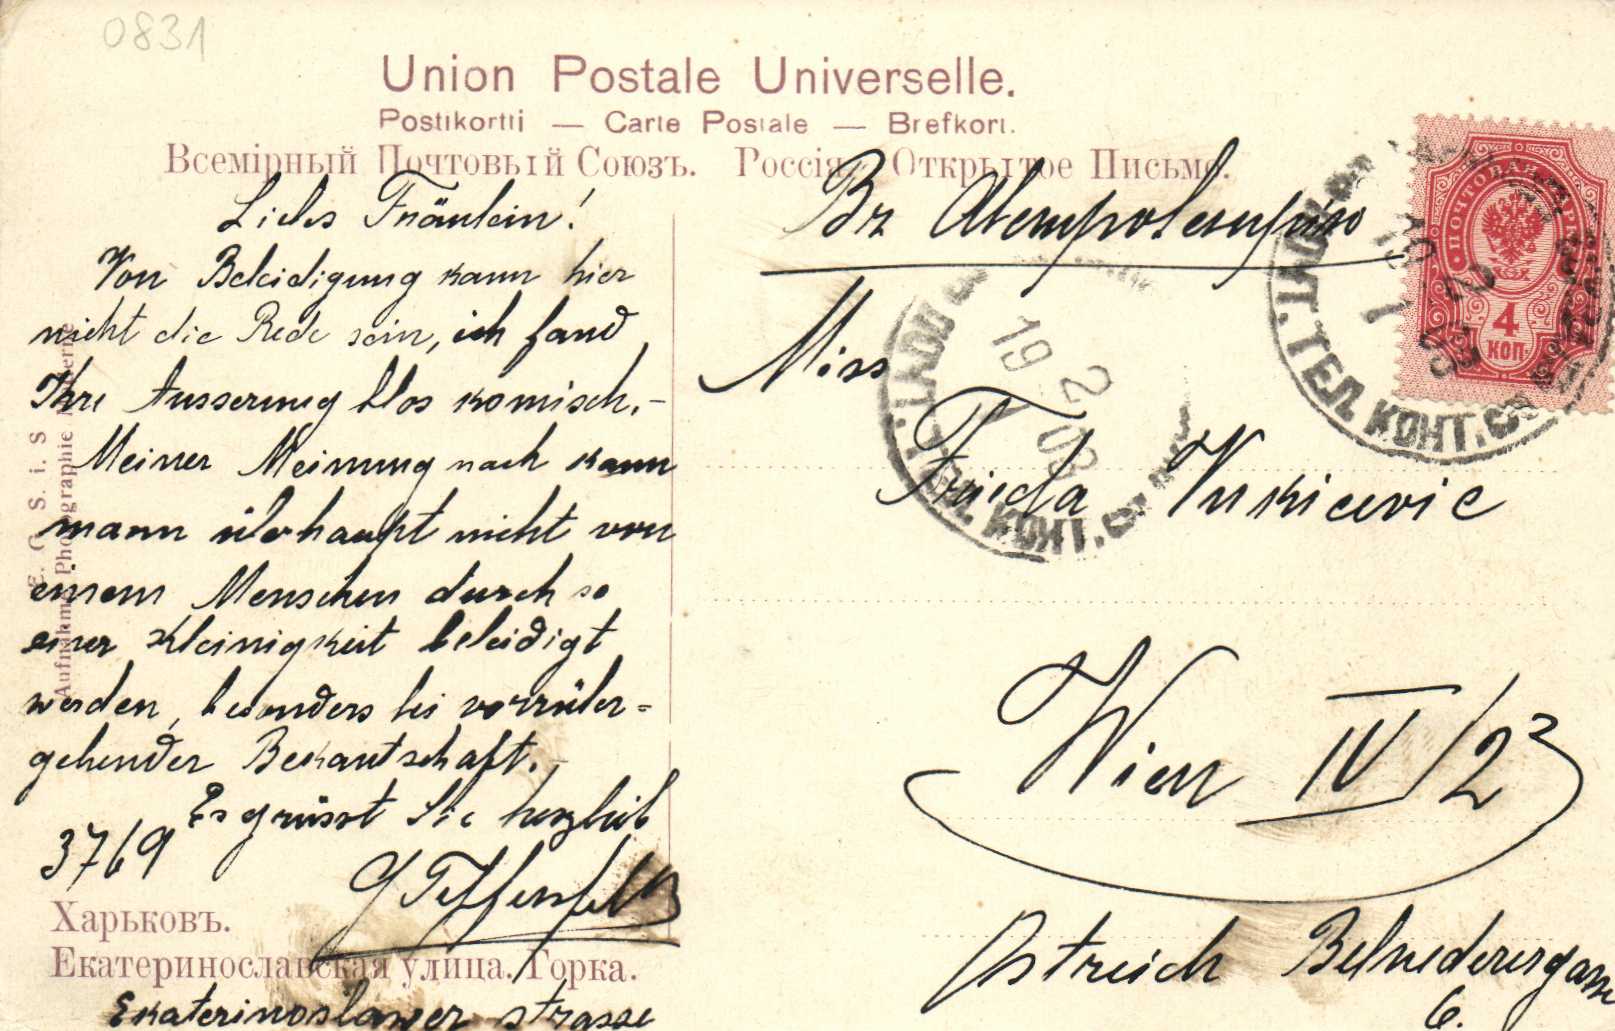 0831
Union Postale Universelle.
Postikortti — Carte Postale — Brefkort.
Всемірный Почтовый Союзъ. Россія. Открытое Письмо.
Liebes Fräulein!
Von Beleidigung kann hier
nicht die Rede sein, ich fand
Ihre Äusserung blos komisch.-
Meiner Meinung nach kann
mann überhaupt nicht von
einem Menschen durch so
einer Kleinigkeit beleidigt
werden, besonders bei vorrüber=
gehender Bekantschaft.-
Es grüsst Sie herzlich
3769
Харьковъ.
Екатеринославская улица. Горка.
Ekaterinoslawer strasse
E. G. S. i. S
Aufnahme Photographie
Вг
Miss
Frieda Vukicevic
Wien IV/2
Östreich Belvederergasse
6.
4
КОП.
ПОЧТ. ТЕЛ. КОНТ.
19 2 03
ПОЧТ. ТЕЛ. КОНТ.
19 2 03